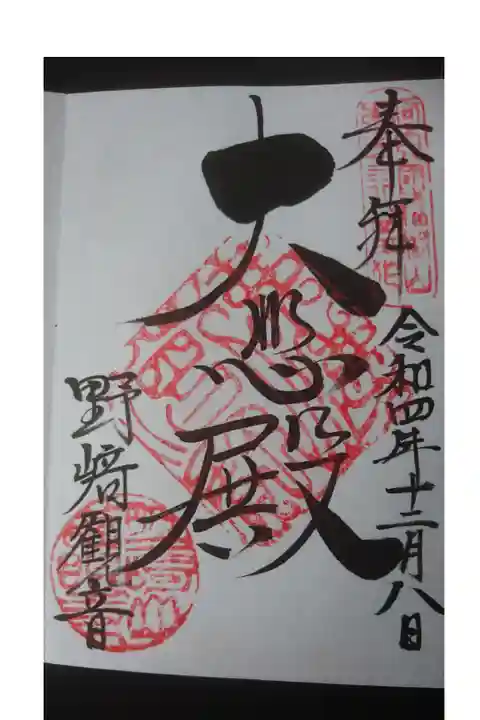 奉拝
令和四年十二月八日
大悲殿
野崎観音